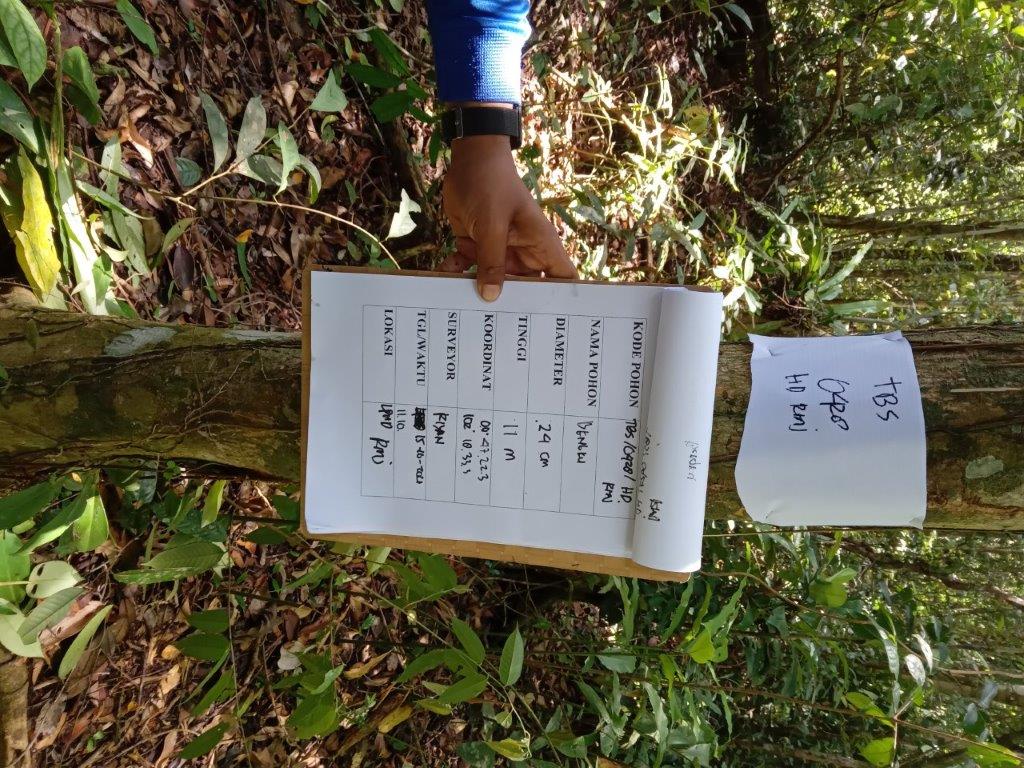 TBS
0428
HD RMJ
KODE POHON TBS/0428/ HD.
RMJ
NAMA POHON
DIAMETER 24 CM
TINGGI 11 M
KOORDINAT 00° 47.223
102° 18.333
SURVEYOR RIYAN
TGL/WAKTU 15-10-2021
11.10.
LOKASI LPHD RMJ